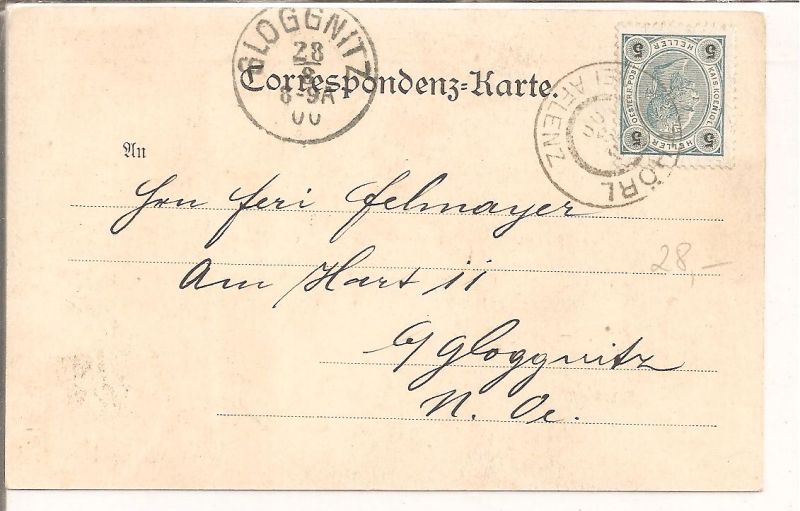 GLOGGNITZ
28
8
8-9A
00
Correspondenz-Karte.
5 HELLER 5
KAIS. KOENIGL.
OESTERR. POST
5 HELLER 5
BEI AFLENZ
An
Hrn Feri Felmayer
Am Hart 11
28,-
G/ Gloggnitz
N. Oe.